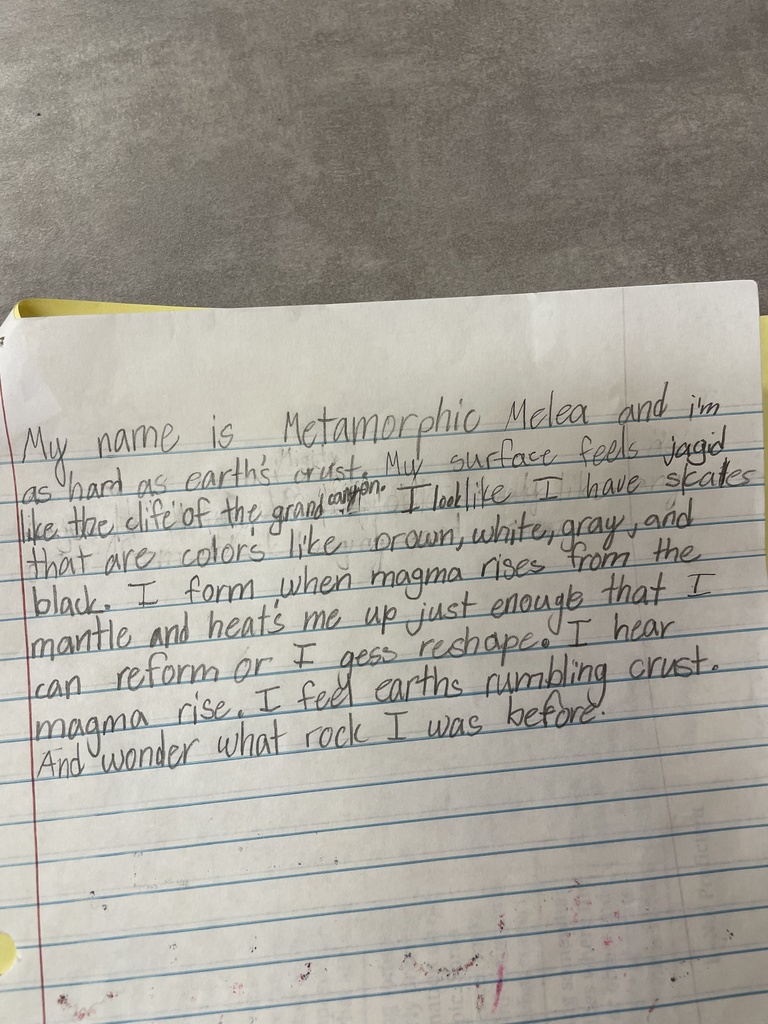 My name is Metamorphic Melea and i'm
as hard as earth's crust. My surface feels jagid
like the clife of the grand canyon. I look like I have scales
that are colors like brown, white, gray, and
black. I form when magma rises from the
mantle and heat's me up just enough that I
can reform or I gess reshape. I hear
magma rise. I feel earths rumbling crust.
And wonder what rock I was before.